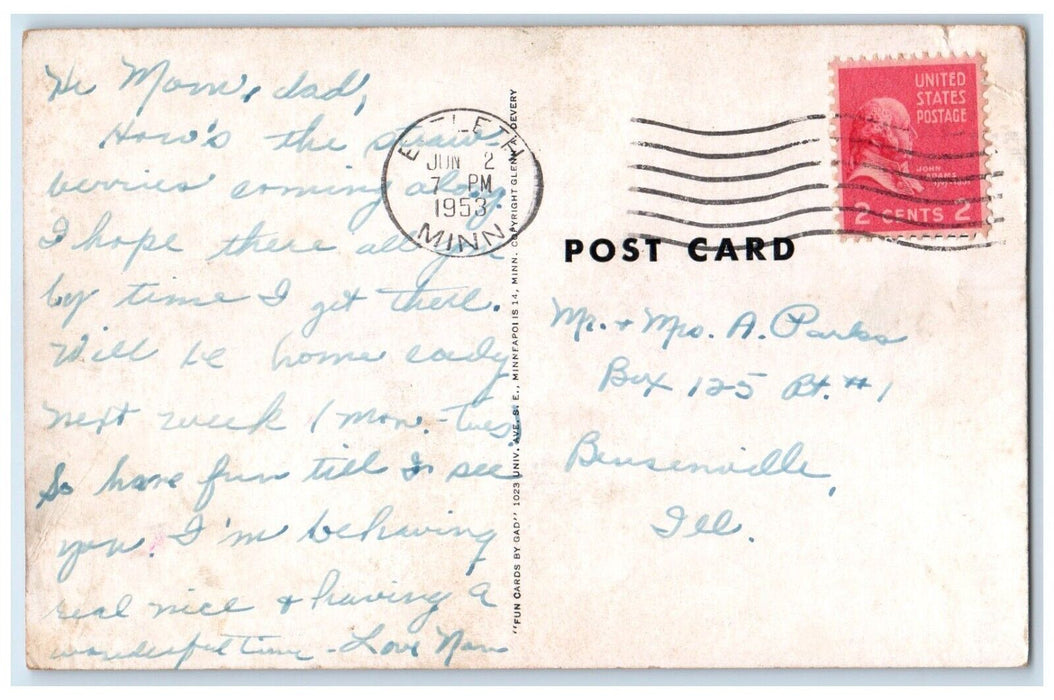 Hi Mom, dad,
How's the straw-
berries coming along.
I hope there all
by time I get there.
Will be home early
next week / mon. - tues.
So have fun till I see
you. I'm behaving
real nice & having a
wonderful time - Love Nan
E LETH
JUN 2
7 PM
1953
MINN.
"FUN CARDS BY GAD" 1023 UNIV. AVE. S. E., MINNEAPOLIS 14, MINN. COPYRIGHT GLENN A. DEVERY
UNITED
STATES
POSTAGE
JOHN
ADAMS
2 CENTS 2
POST CARD
Mr. + Mrs. A. Parks
Box 125 Rt. #1
Bensenville,
Ill.